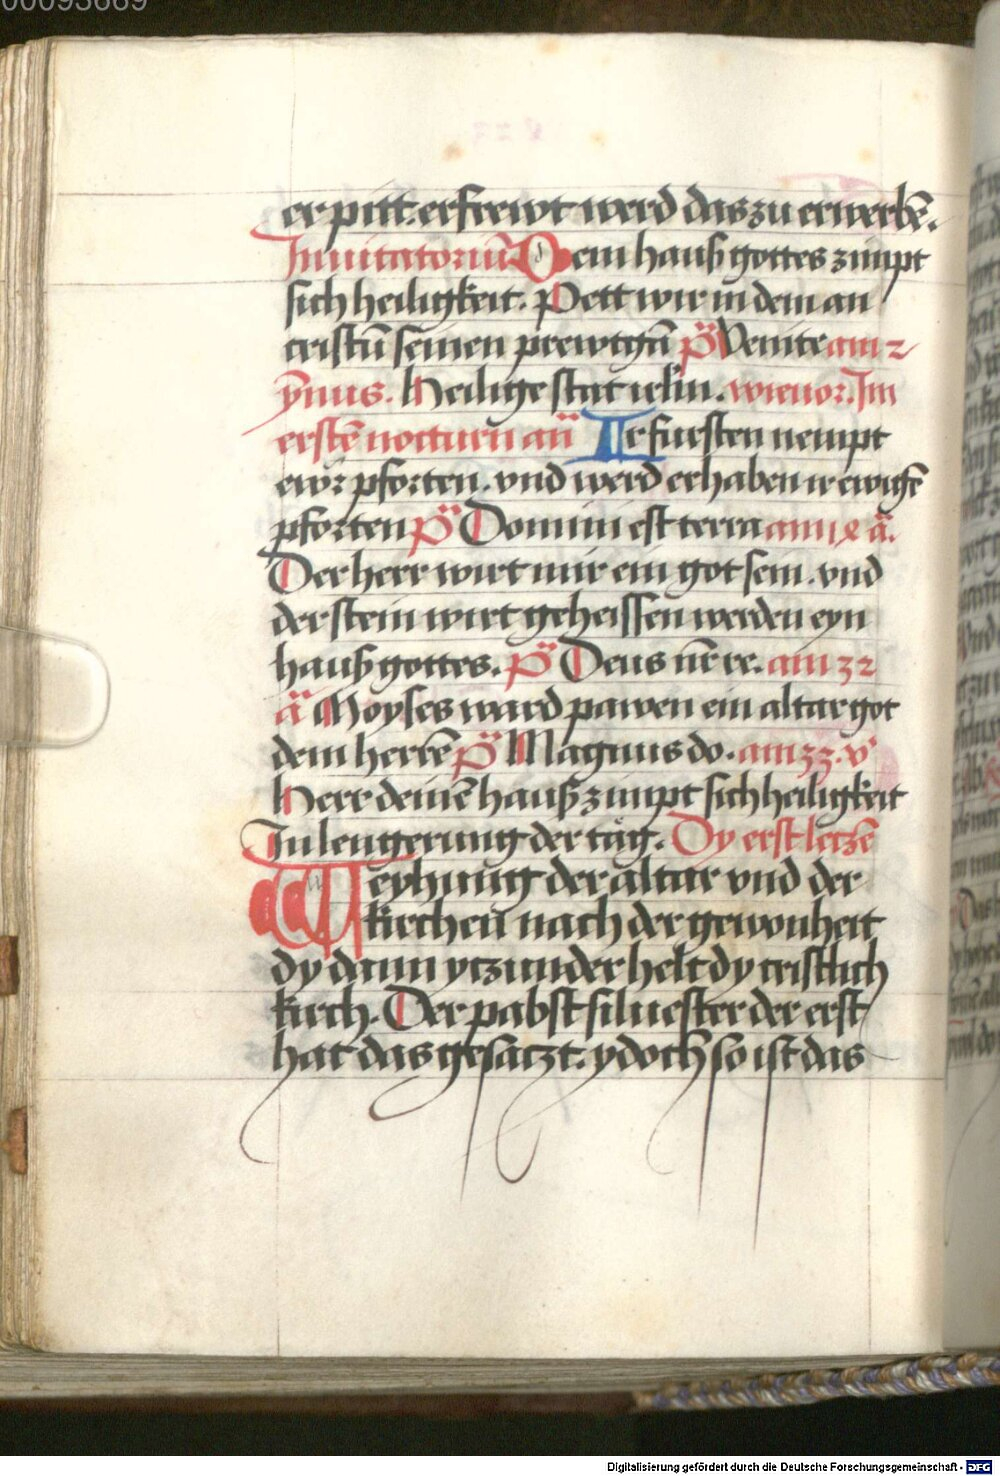 00093669
er pitt. erfrewt werd das zu erwerbē.
Inuitatoriū Dem hauß gottes zimpt
sich heiligkeit. Pett wir in dem an
cristū seinen prewtgā pͤ Venite am 2
ymnus. Heilige stat irlm. wie uor. Im
erstē nocturn an̄ Ir fursten nempt
ewr pforten. vnd werd erhaben ir ewigē
pforten pͤ Domini est terra am ix ā.
Der herr wirt mir ein got sein. vnd
der stein wirt geheissen werden eyn
hauß gottes. pͤ Deus nr̄ re. am 32
ā Moyses ward pawen ein altar got
dem herrē pͤ Magnus do. am 33. v̓
Herr deinē hauß zimpt sich heiligkeit
In lengerung der tag. Dy erst leczē
Weyhung der altar vnd der
kirchen nach der gewonheit
dy dann yczunder helt dy cristlich
kirch. Der pabst siluester der erst
hat das gesaczt. ydoch so ist das
Digitalisierung gefördert durch die Deutsche Forschungsgemeinschaft - DFG